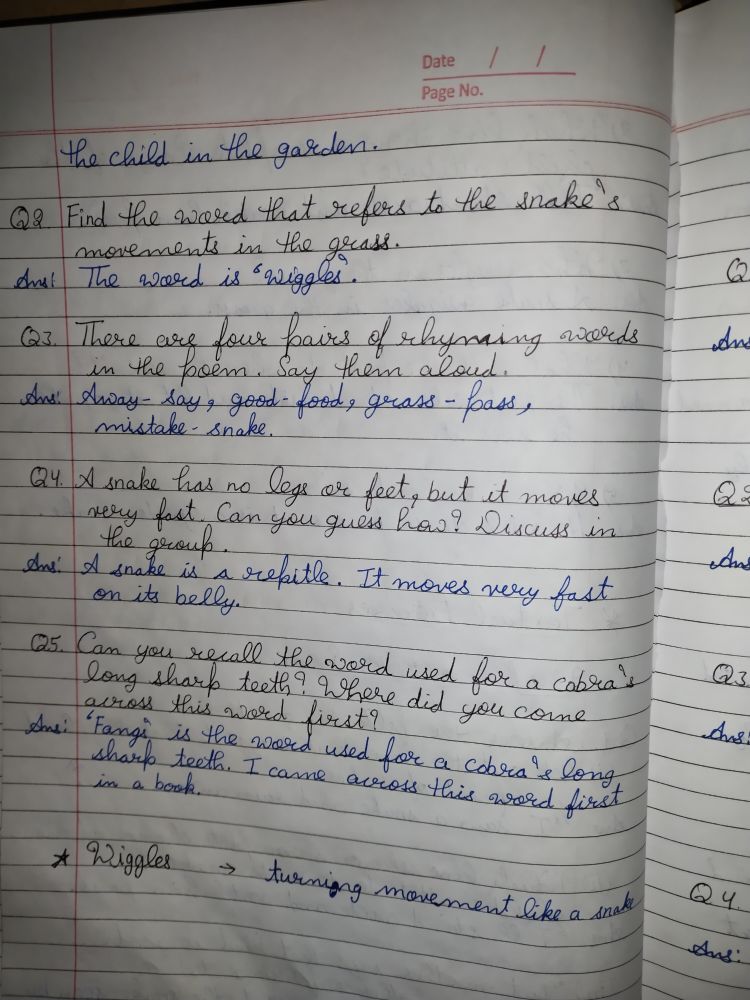 Date / /
Page No.
the child in the garden.
Q2 Find the word that refers to the snake's
movements in the grass.
Ans! The word is 'wiggles'.
Q3. There are four pairs of rhyming words
in the poem. Say them aloud.
Ans: Away - say, good - food, grass - pass,
mistake - snake.
Q4. A snake has no legs or feet, but it moves
very fast. Can you guess how? Discuss in
the group.
Ans: A snake is a repitle. It moves very fast
on its belly.
Q5. Can you recall the word used for a cobra's
long sharp teeth? Where did you come
across this word first?
Ans: 'Fangs' is the word used for a cobra's long
sharp teeth. I came across this word first
in a book.
* Wiggles → turning movement like a snake
Q
Ans
Q2
Ans
Q3
Ans:
Q4.
Ans: